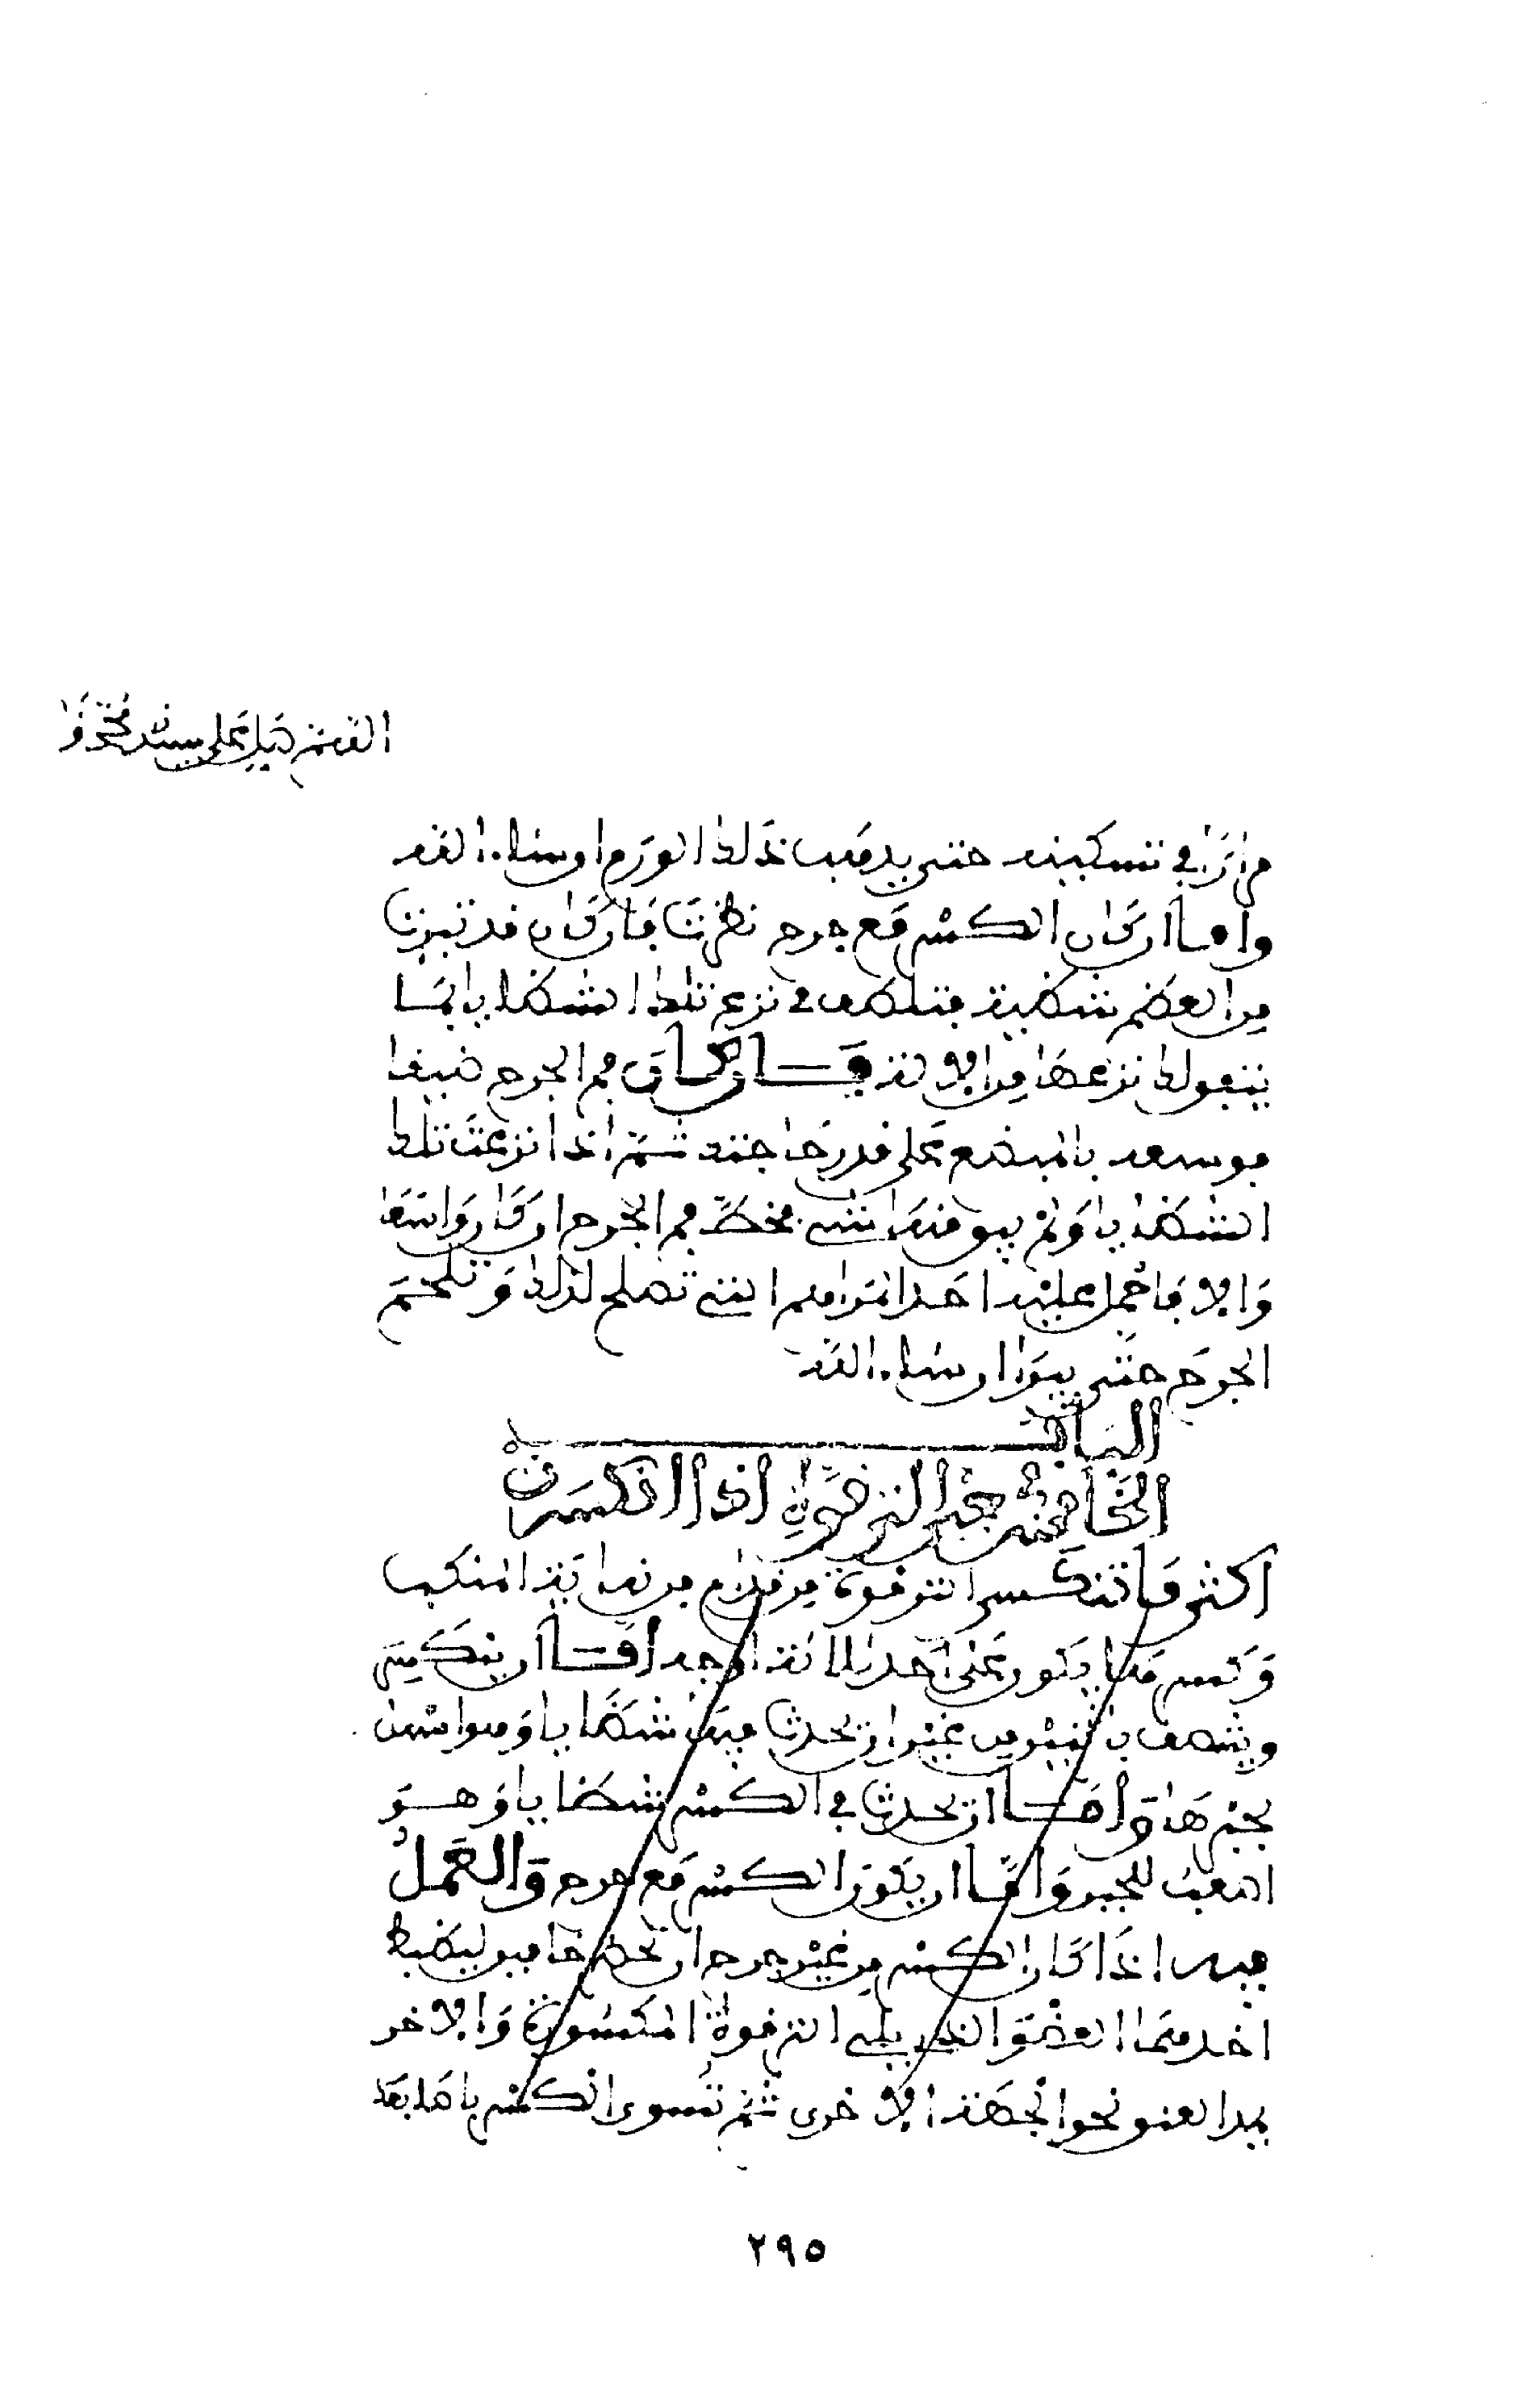 اللهم صل على سيدنا محمد
مرارا في تسكينه حتى يذهب ذلك الورم ان شاء الله
واما ان كان الكسر مع جرح نظرت فان كان قد تبرت
من العظم شظية فتلطف في نزع تلك الشظايا بما
يتقول لك نزعها من الالة فان كان فم الجرح ضيقا
فوسعه بالمبضع على قدر حاجته ثم اذا نزعت تلك
الشظايا ولم يبق منها شي فخط فم الجرح ان كان واسعا
والا فاحمل عليه احد المراهم التي تصلح لذلك وتلحم
الجرح حتى يبرا ان شاء الله
الباب
الخامس في جبر الترقوة اذا انكسرت
اكثر ما تنكسر الترقوة من قدام من ناحية المنكب
وكسرها يكون على احد ثلاثة اوجه اما ان ينكسر
وينصف باثنين من غير ان تحدث فيها شظايا وهو اسهل
لجبرها واما ان تحدث في الكسر شظايا وهو
اصعب للجبر واما ان يكون الكسر مع جرح والعمل
فيه اذا كان الكسر من غير جرح ان تحضر خادمين ليضبط
احدهما العضو الذي يلي الترقوة المكسورة والاخر
يمد العنق نحو الجهة الاخرى ثم تسوي الكسر باصابعك
٢٩٥